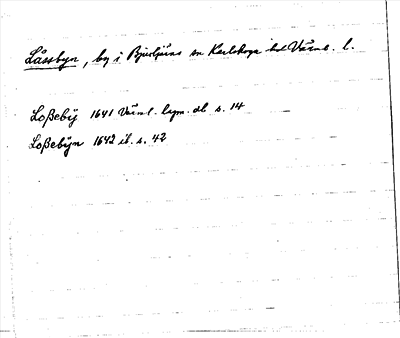 Låssbyn, by i Bjurtjärns sn Karlskoga hd Värml. l.
Loßebÿ 1641 Värml. lagm. db s. 14
Loßebÿn 1642 ib. s. 42